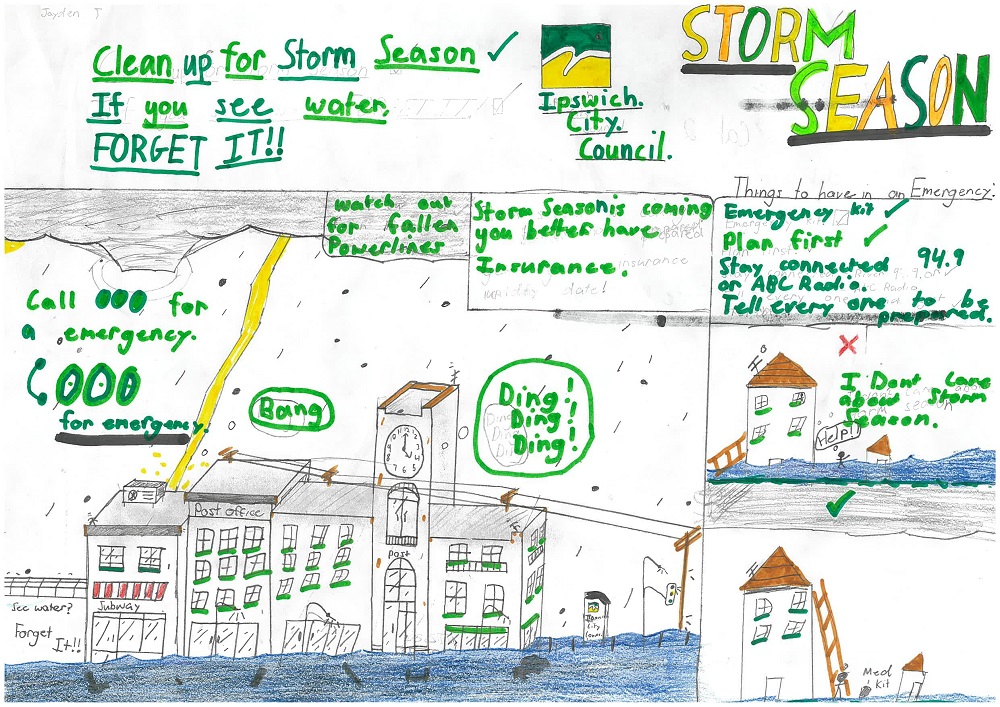 Jaysten T
Clean up for Storm Season ✓
If you see water,
FORGET IT!!
Ipswich.
City.
Council.
STORM
SEASON
watch out
for fallen
Powerlines
Storm Season is coming
you better have
Insurance.
Things to have in an Emergency:
Emergency kit ✓
Plan first ✓
Stay connected 94.9
or ABC Radio.
Tell every one to be
prepared.
Call 000 for
a emergency.
000
for emergency.
Bang
Ding!
Ding!
Ding!
I Dont Care
about Storm
Season.
Help!
Post Office
Post
Subway
See water?
Forget
It!!
Ipswich
City
Council
Med
Kit